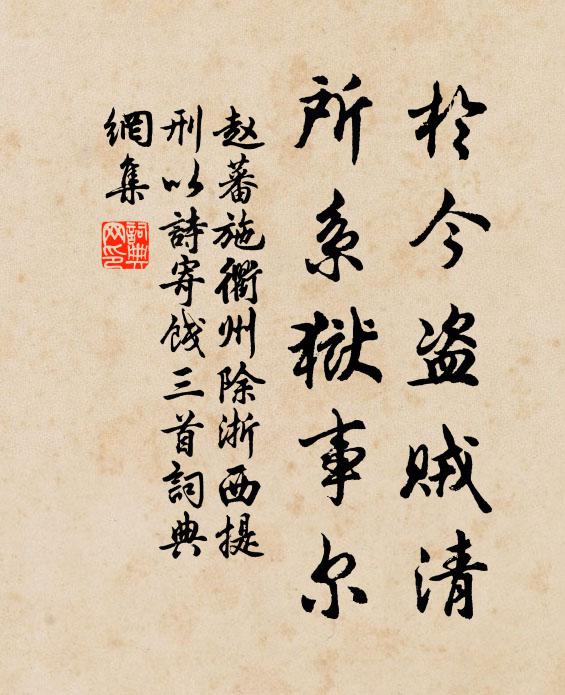 於今盗贼清
所系獄事尔
赵蕃施衢州除浙西提
刑以詩寄餞三首詞典
網集
詞典
网印